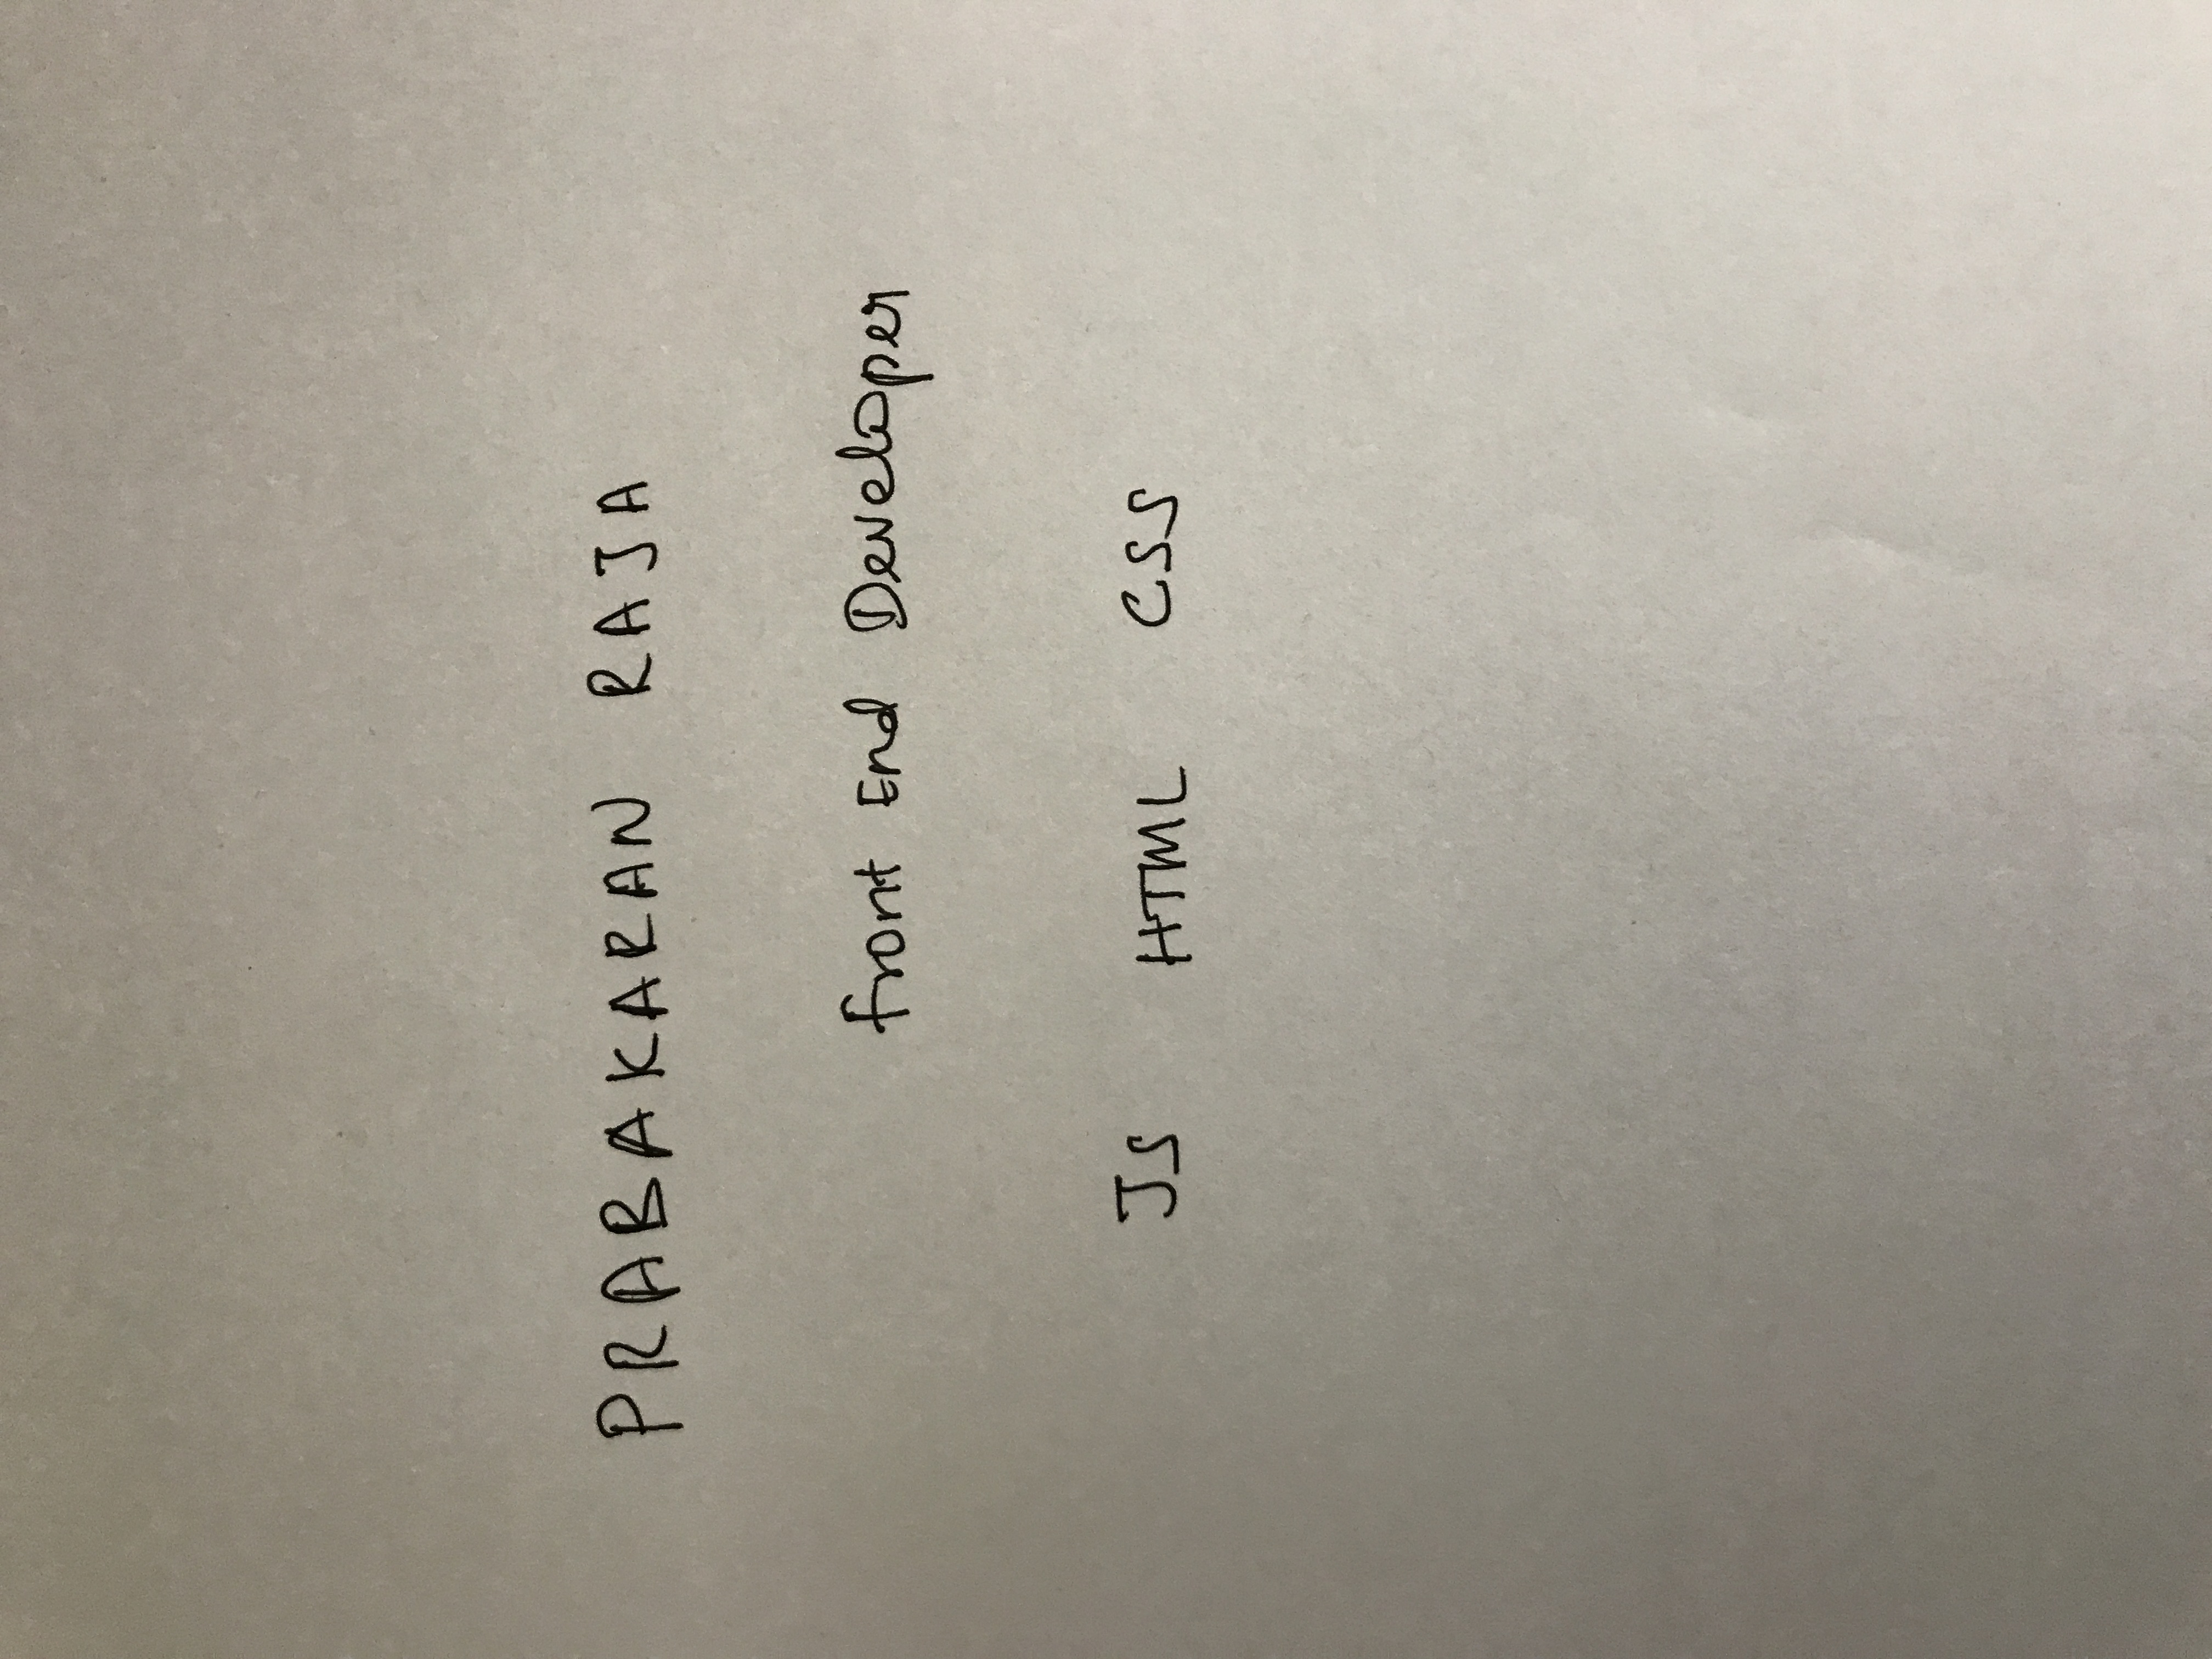 PRABAKARAN RAJA
front End Developer
JS HTML CSS